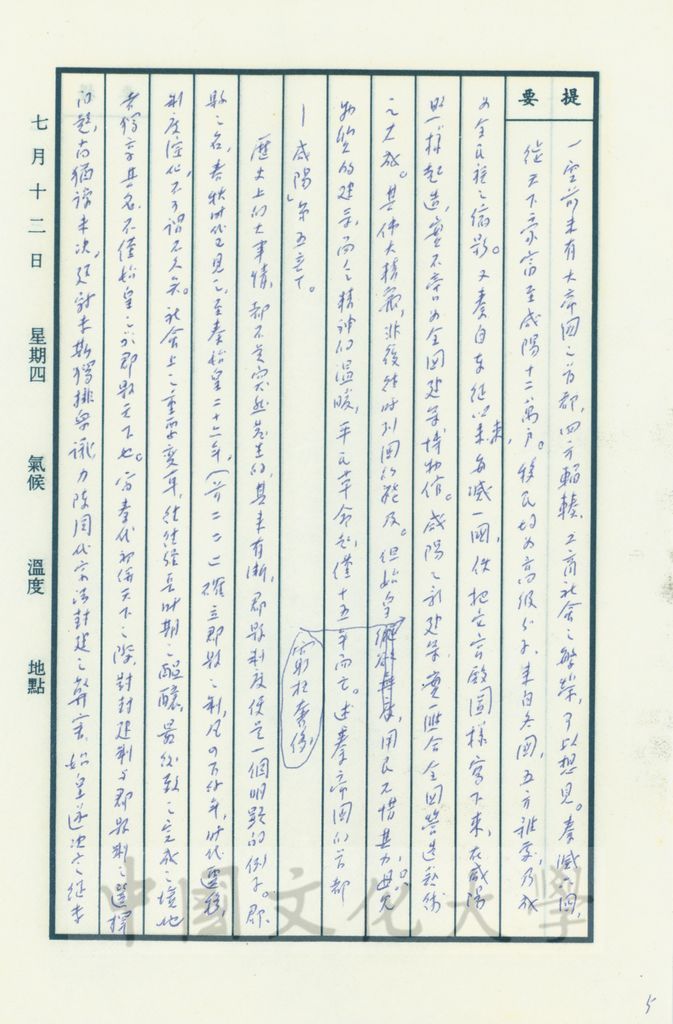 提要
一空前未有大帝國之首都,四方輻輳,工商社會之繁榮,可以想見。秦滅六國,
徙天下豪富至咸陽十二萬戶。移民均為高級分子,來自各國,五方雜處,乃成
為全民族之縮影。又秦自東征以來,每滅一國,佚把它宮殿圖樣寫下來,在咸陽
照樣起造,實不啻為全國建築博物館。咸陽之新建築,實匯合全國營造藝術
之大成。其偉大精嚴,非後繼時列國所能及。但始皇窮極奢侈,用民不惜其力,
物質的建築,而乏精神的溫暖,平民革命起,僅十五年而亡。述秦帝國的首都
—咸陽」第五章。
歷史上的大事情,都不是突然發生的,其來有漸,郡縣制度便是一個明顯的例子。郡
縣之名,春秋時代已見之,至秦始皇二十六年,(前二二一)確立郡縣之制,凡四百餘年,時代靈移,
制度深化,不可謂不久矣。社會上之重要變革,往往經長時期之醞釀,最後致之完成之境地
者獨享其名,不僅始皇之於郡縣天下也。當秦代初併天下之際,對封建制與郡縣制之選擇
問題,尚猶豫未決,廷尉李斯獨排眾議,力陳周代宗法封建之弊害,始皇遂決定繼李
七月十二日 星期四 氣候 溫度 地點
中國文化大學
5